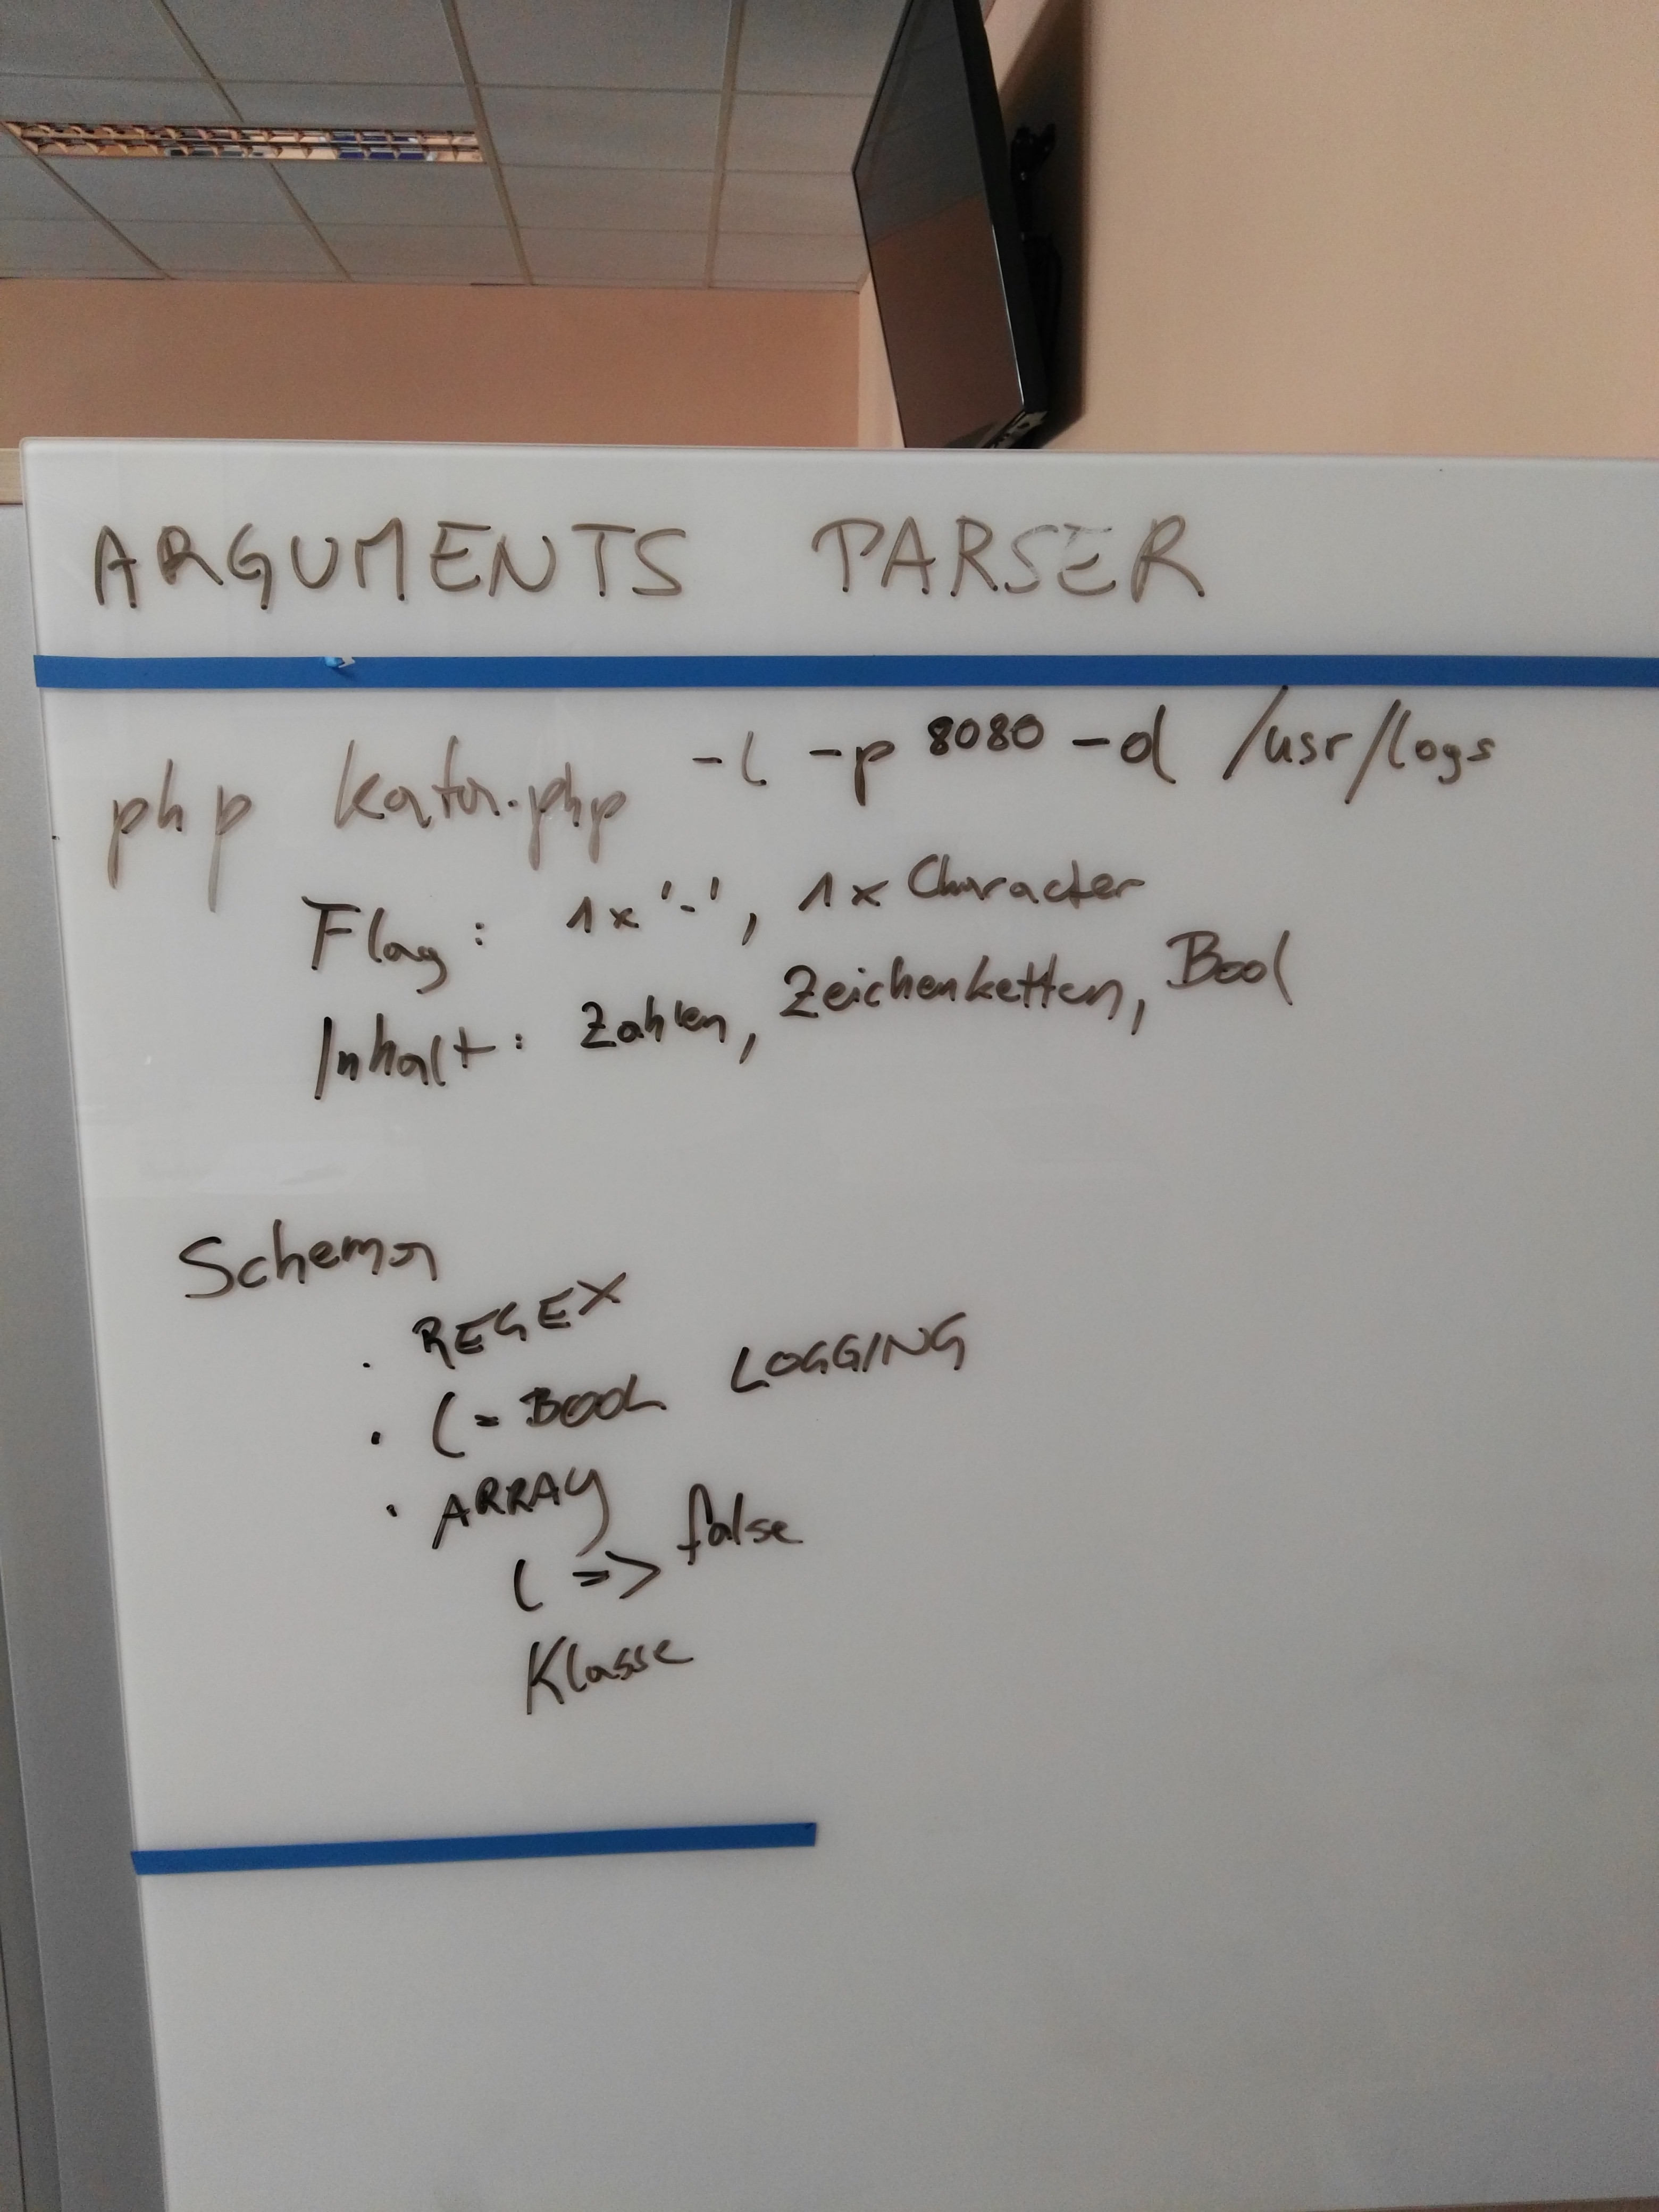 ARGUMENTS PARSER
php kata.php -l -p 8080 -d /usr/logs
Flag: 1x '-', 1x Character
Inhalt: Zahlen, Zeichenketten, Bool
Schema
· REGEX
· l = BOOL LOGGING
· ARRAY
l => false
Klasse